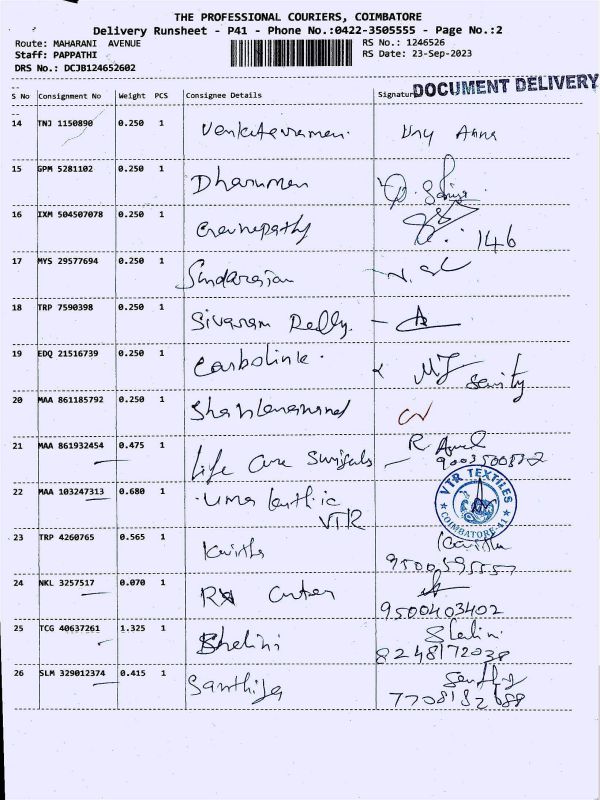 THE PROFESSIONAL COURIERS, COIMBATORE
Delivery Runsheet - P41 - Phone No.:0422-3505555 - Page No.:2
Route: MAHARANI AVENUE RS No.: 1246526
Staff: PAPPATHI RS Date: 23-Sep-2023
DRS No.: DCJB124652602
DOCUMENT DELIVERY
S No Consignment No Weight PCS Consignee Details Signature
14 TNJ 1150890 0.250 1
15 GPM 5281102 0.250 1 Dharumen
16 IXM 504507078 0.250 1 146
17 MYS 29577694 0.250 1 Sundarajan
18 TRP 7590398 0.250 1 Sivaram Reddy
19 EDQ 21516739 0.250 1 Carbolink
20 MAA 861185792 0.250 1
21 MAA 861932454 0.475 1 Life Care Surgicals
22 MAA 103247313 0.680 1 Uma
VTR
VTR TEXTILES
COIMBATORE-41
23 TRP 4260765 0.565 1 Kavitha Kavitha
24 NKL 3257517 0.070 1
9500403402
25 TCG 40637261 1.325 1 Shalini Shalini
8248172038
26 SLM 329012374 0.415 1 Santhiya
7708182688